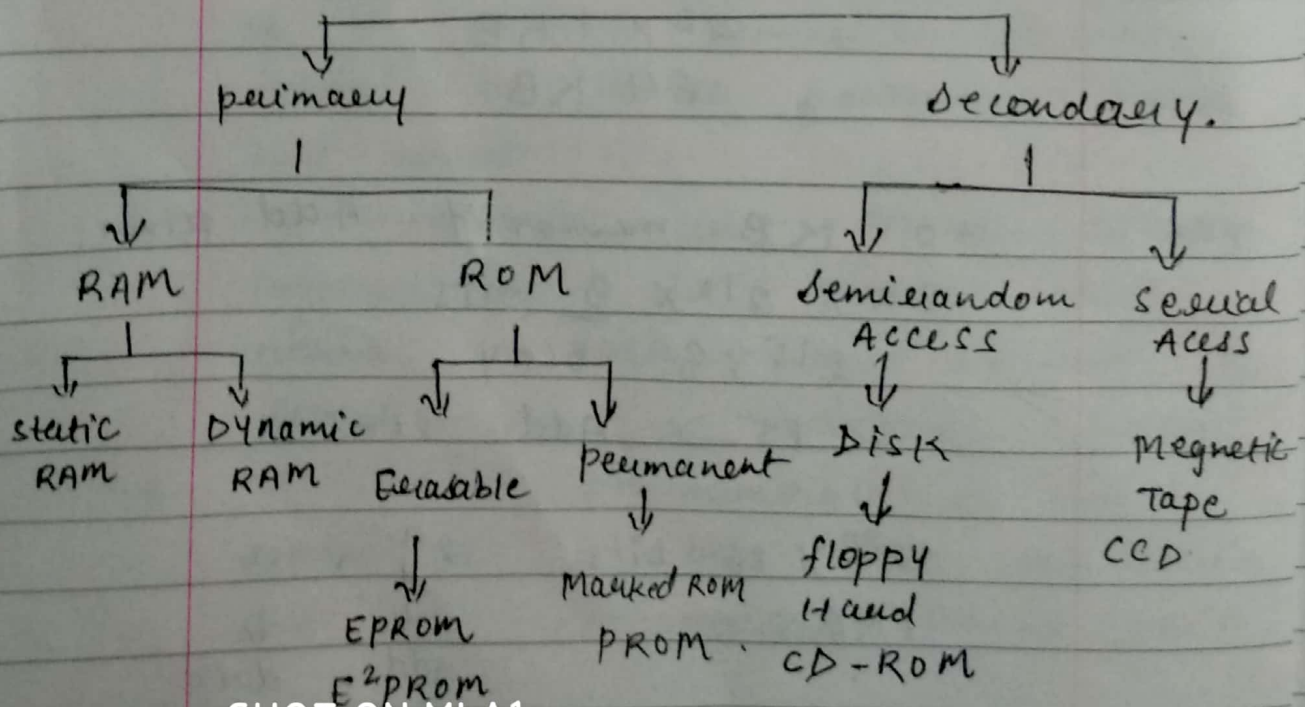 primary
Secondary.
RAM
ROM
Semirandom
ACCESS
Serial
Acess
Static
RAM
DYnamic
RAM
Erasable
permanent
DISK
Megnetic
Tape
CCD
EPROM
E²PROM
Marked ROM
PROM.
floppy
Hard
CD-ROM